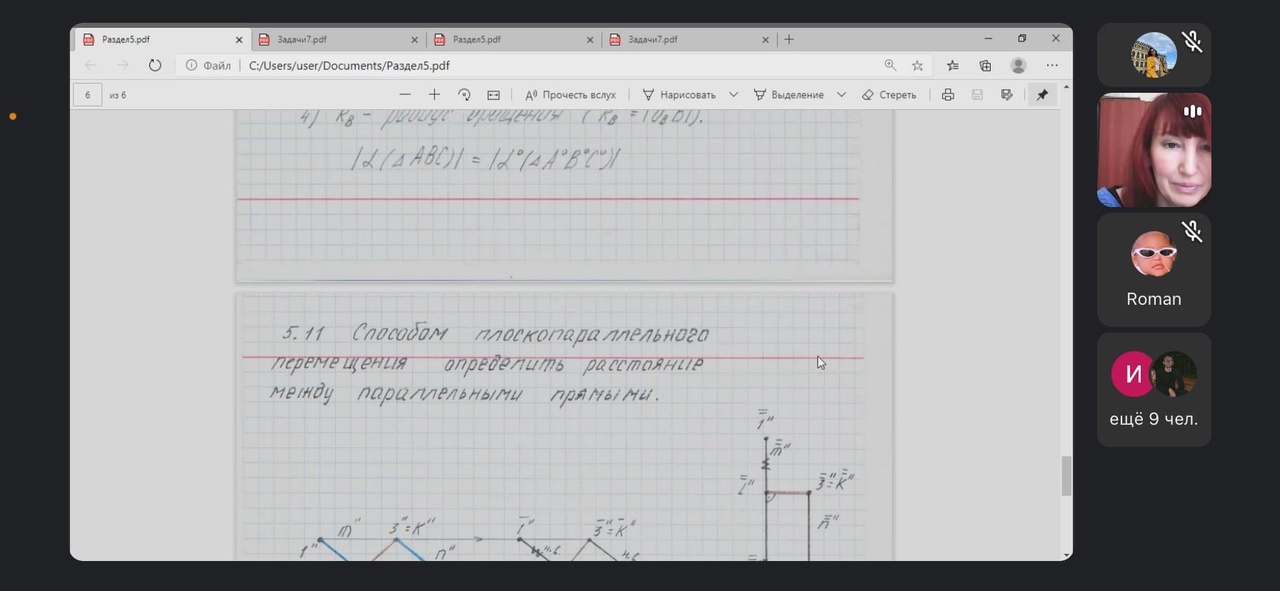 Раздел5.pdf
Задачи7.pdf
Раздел5.pdf
Задачи7.pdf
Файл
C:/Users/user/Documents/Раздел5.pdf
6
из 6
Прочесть вслух
Нарисовать
Выделение
Стереть
4) R_B - радиус вращения (R_B = |O_B B|).
|α(△ABC)| = |α°(△A°B°C°)|
5.11 Способом плоскопараллельного
перемещения определить расстояние
между параллельными прямыми.
1̿"
m̿"
L̿"
3̿"=K̿"
n̿"
m"
3"=K"
1"
n"
1̄"
3̄"=K̄"
н.в
н.в
Roman
И
ещё 9 чел.